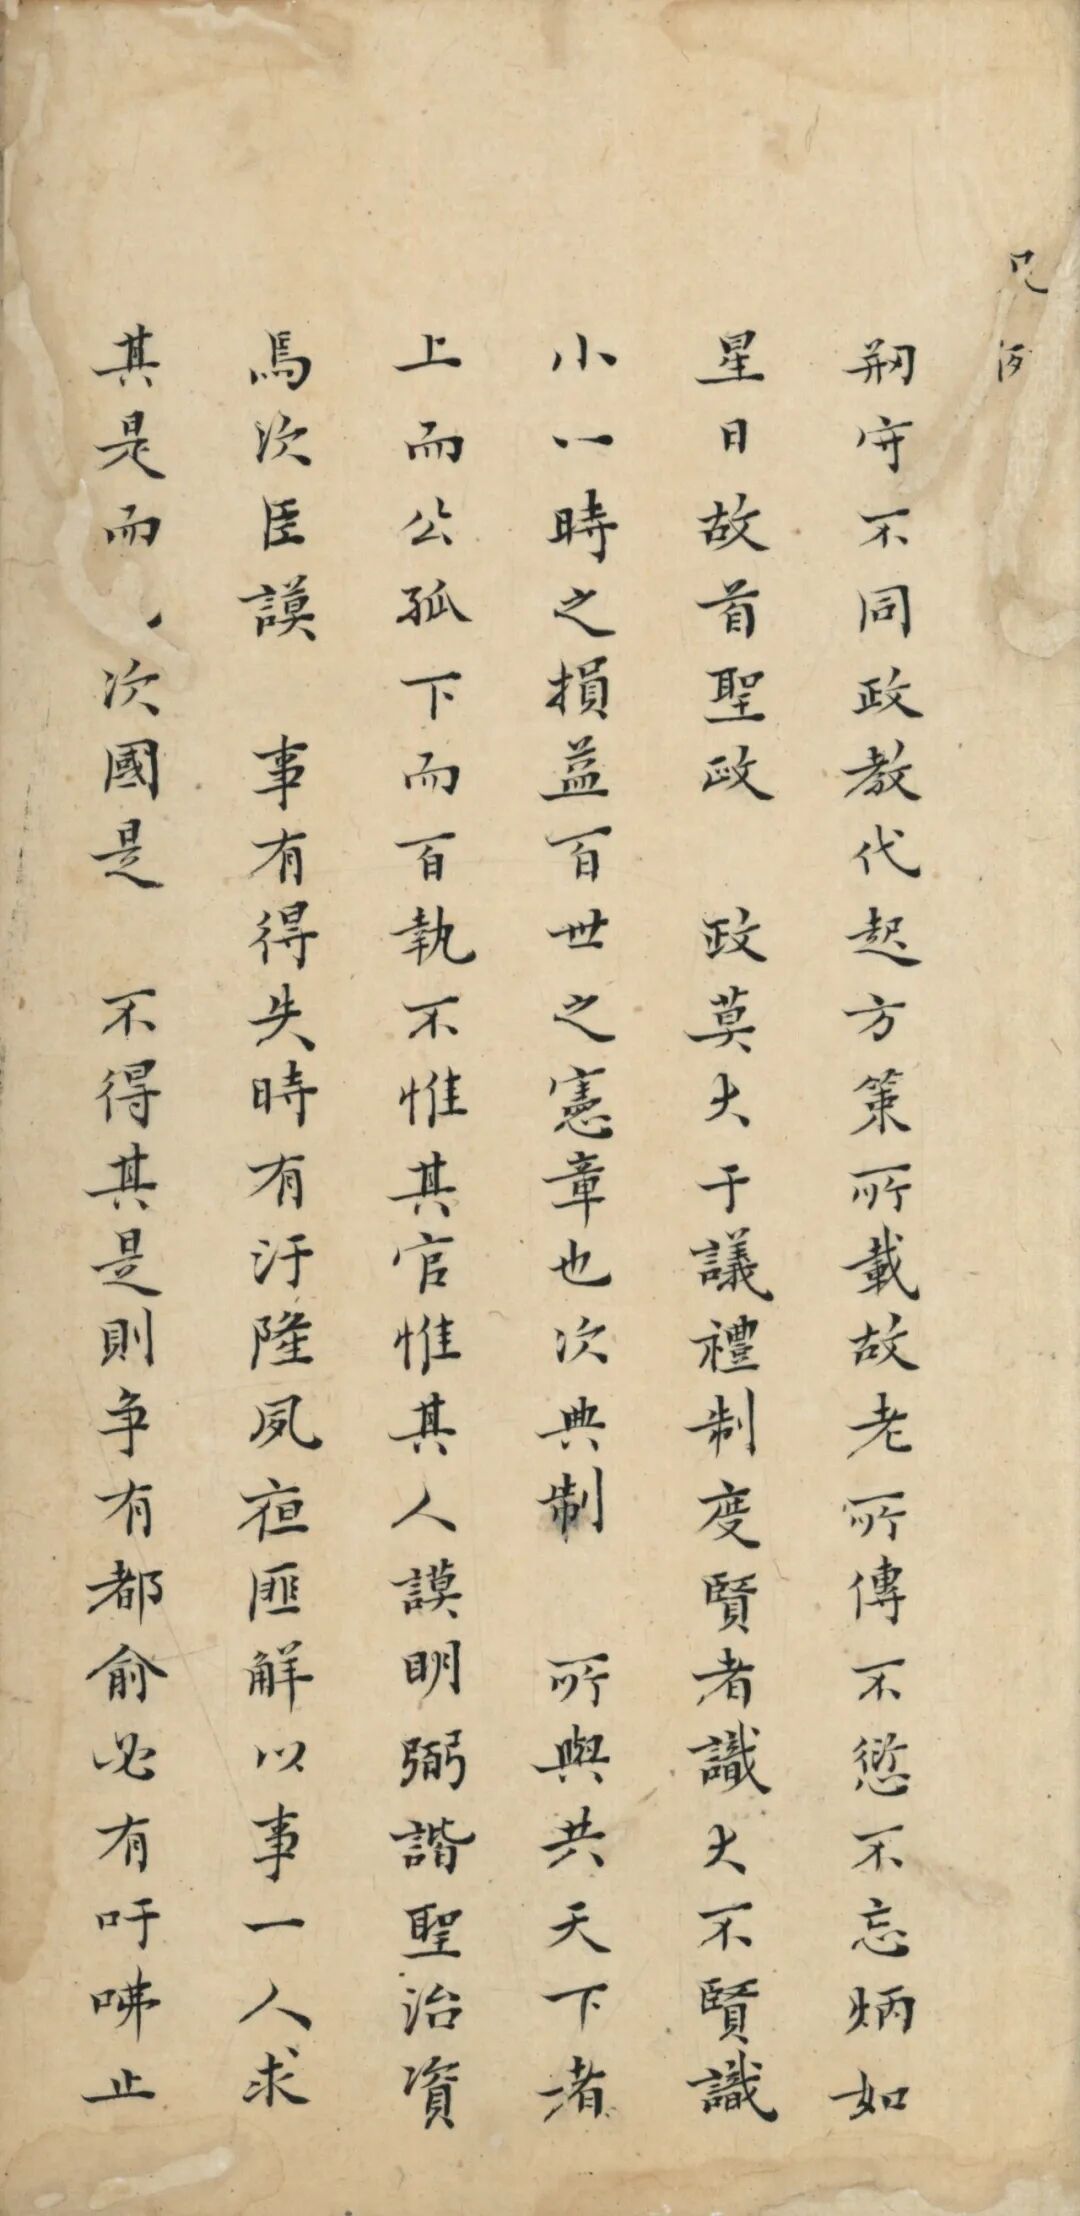 凡
剏守不同政教代起方策所載故老所傳不愆不忘炳如
星日故首聖政 政莫大于議禮制度賢者識大不賢識
小一時之損益百世之憲章也次典制 所與共天下者
上而公孤下而百執不惟其官惟其人謨明弼諧聖治資
焉次臣謨 事有得失時有汙隆夙夜匪解以事一人求
其是而 次國是 不得其是則争有都俞必有吁咈止